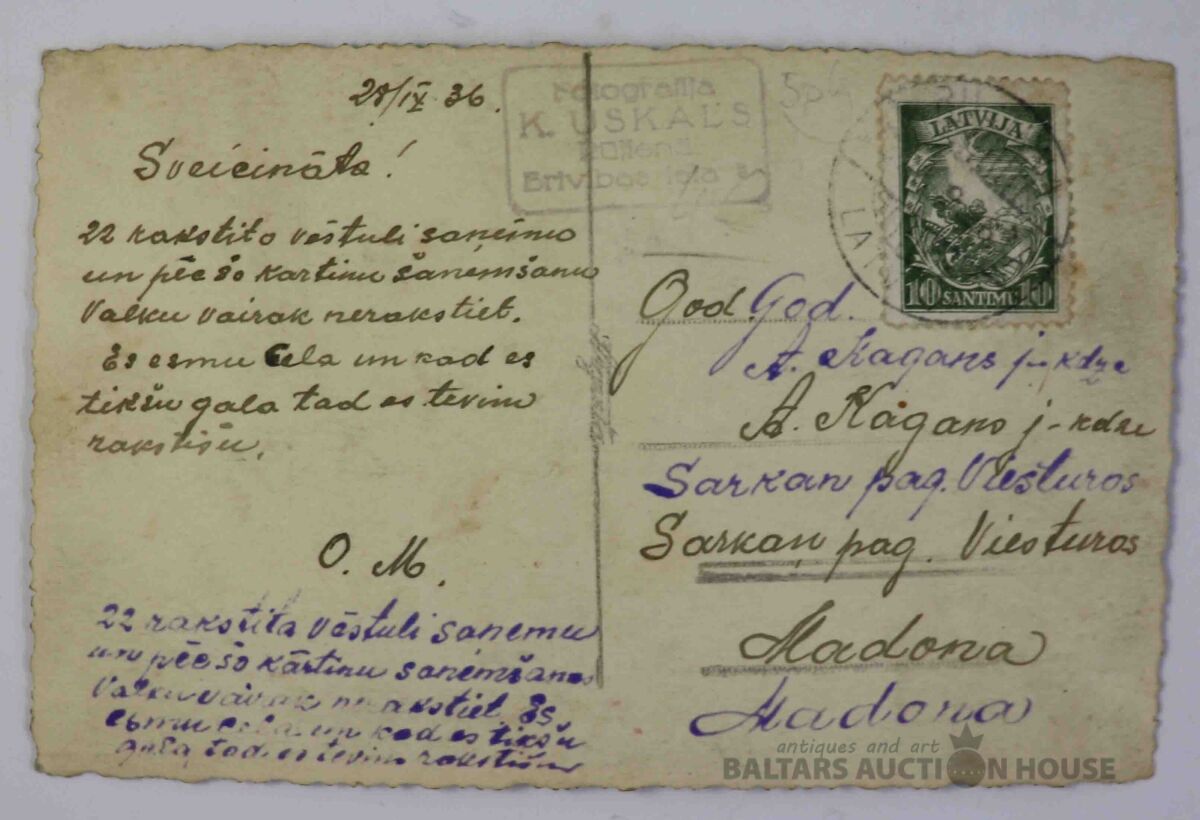 28/IX 36.
Sveicināta!
22 rakstito vēstuli saņēmu
un pēc šo kartiņu saņemšanu
Valku vairak nerakstiet.
Es esmu ceļa un kad es
tikšu gala tad es tevim
rakstišu.
O. M.
22 rakstita vēstuli saņemu
un pēc šo kārtiņu saņemšanas
Valku vairak nerakstiet. Es
esmu ceļa un kad es tikšu
gala tad es tevim rakstišu
Fotografija
K. USKALS
Rūjienā
Brīvības iela
LATVIJA
10 SANTIMU 10
God. God.
A. Kagans j-kdze
A. Kagans j-kdze
Sarkaņ pag. Viesturos
Sarkaņ pag. Viesturos
Madona
Madona
antiques and art
BALTARS AUCTION HOUSE